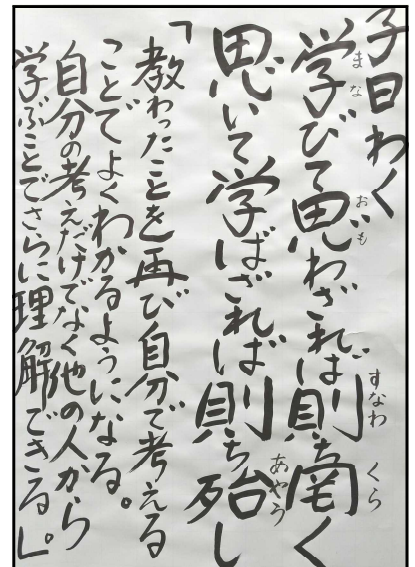 子曰わく
学びて思わざれば則ち罔く
思いて学ばざれば則ち殆し
「教わったことを再び自分で考える
ことでよくわかるようになる。
自分の考えだけでなく他の人から
学ぶことでさらに理解できる」。